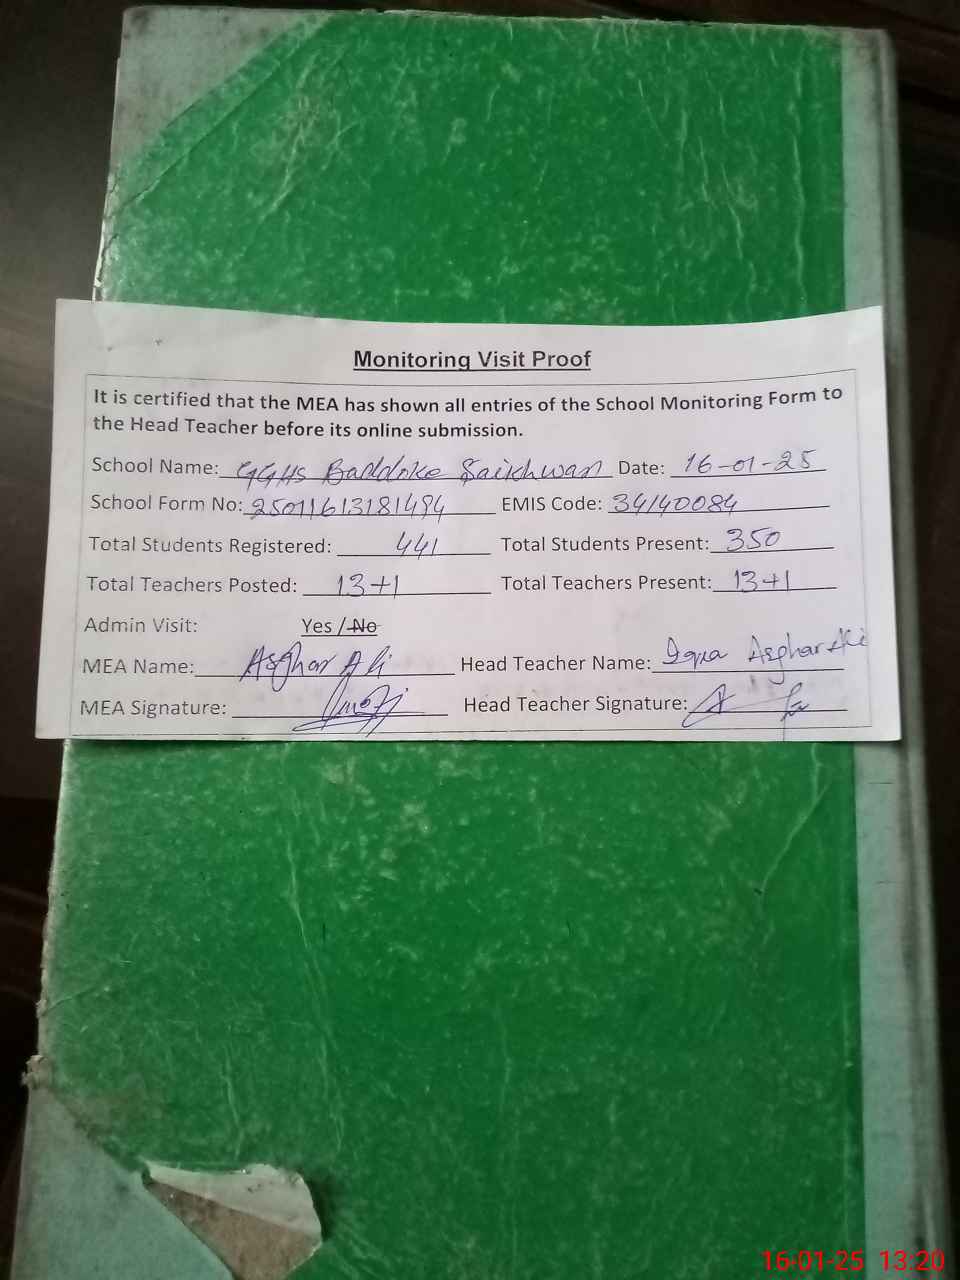 Monitoring Visit Proof
It is certified that the MEA has shown all entries of the School Monitoring Form to
the Head Teacher before its online submission.
School Name: GGHS Baddoke Saikhwan Date: 16-01-25
School Form No: 25011613181494 EMIS Code: 34140084
Total Students Registered: 441 Total Students Present: 350
Total Teachers Posted: 13+1 Total Teachers Present: 13+1
Admin Visit: Yes / No
MEA Name: Asghar Ali Head Teacher Name: Iqra Asghar Ali
MEA Signature: Head Teacher Signature:
16-01-25 13:20